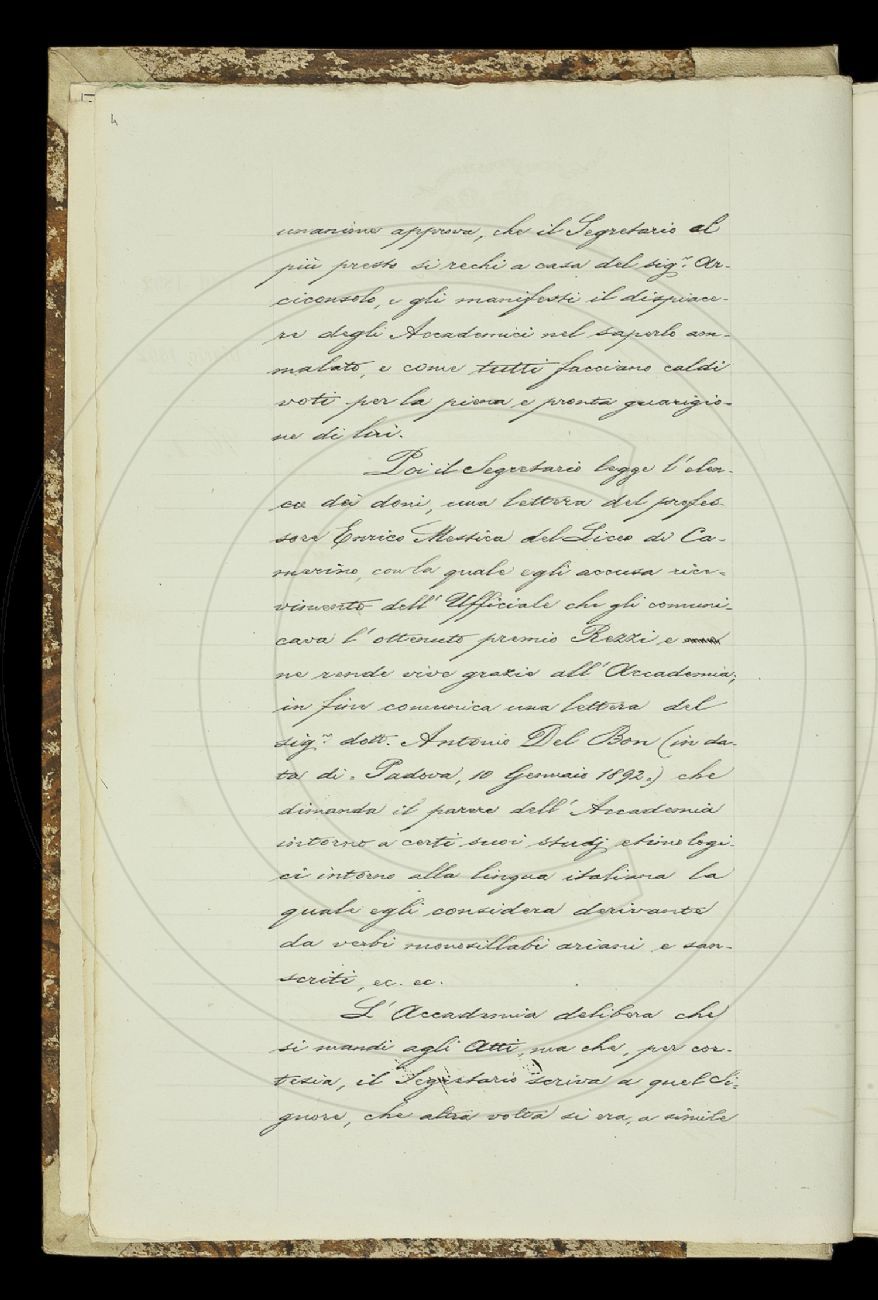 4
unanime approva, che il Segretario al
più presto si rechi a casa del sig.r Ar-
ciconsolo, e gli manifesti il dispiace-
re degli Accademici nel saperlo am-
malato, e come tutti facciano caldi
voti per la piena e pronta guarigio-
ne di lui.
Poi il Segretario legge l'elen-
co dei doni, una lettera del profes-
sore Enrico Mestica del Liceo di Ca-
merino, con la quale egli accusa rice-
vimento dell'Ufficiale che gli comuni-
cava l'ottenuto premio Rezzi e
ne rende vive grazie all'Accademia;
in fine comunica una lettera del
sig.r dott. Antonio Del Bon (in da-
ta di Padova, 10 Gennaio 1892.) che
dimanda il parere dell'Accademia
intorno a certi suoi studj etimologi-
ci intorno alla lingua italiana la
quale egli considera derivante
da verbi monosillabi ariani e san-
scriti, ec. ec.
L'Accademia delibera che
si mandi agli Atti, ma che, per cor-
tesia, il Segretario scriva a quel Si-
gnore, che altra volta si era, a simile